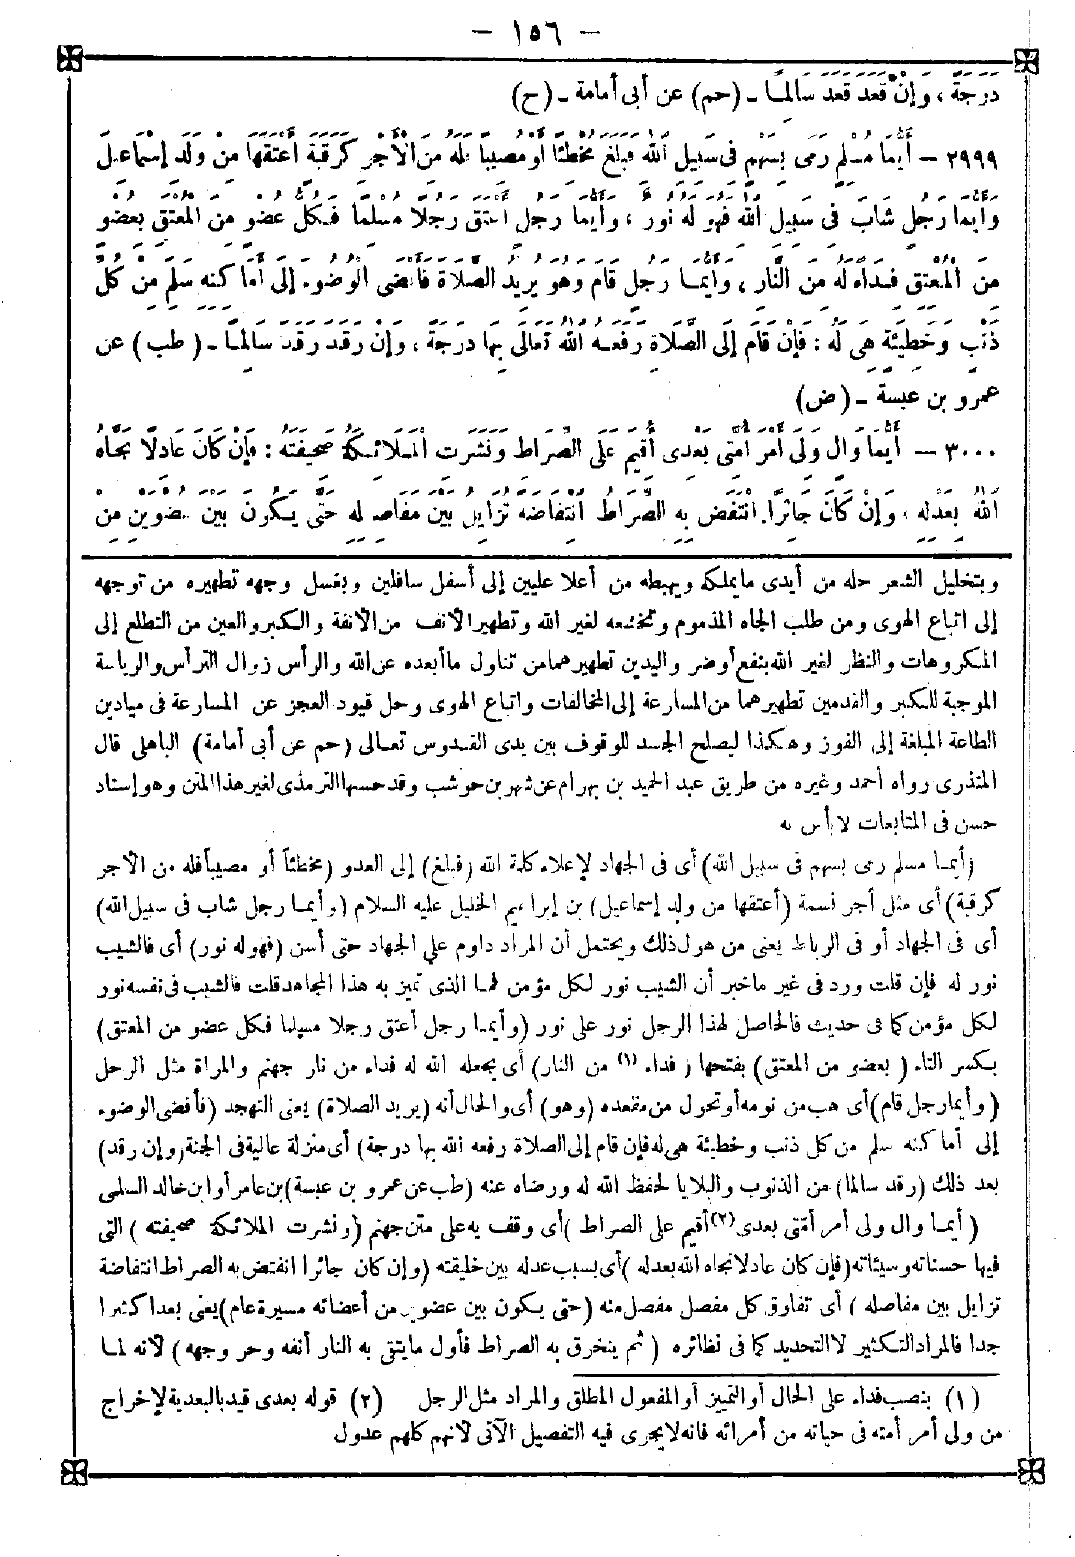 - ١٥٦ -
دَرَجَةً ، وَإِنْ قَعَدَ قَعَدَ سَالِمًا - (حم) عن أبى أمامة - (ح)
٢٩٩٩ - أَيُّمَا مُسْلِمٍ رَمَى بِسَهْمٍ فِى سَبِيلِ اللهِ فَبَلَغَ مُخْطِئًا أَوْ مُصِيبًا فَلَهُ مِنَ الْأَجْرِ كَرَقَبَةٍ أَعْتَقَهَا مِنْ وَلَدِ إِسْمَاعِيلَ
وَأَيُّمَا رَجُلٍ شَابَ فِى سَبِيلِ اللهِ فَهُوَ لَهُ نُورٌ ، وَأَيُّمَا رَجُلٍ أَعْتَقَ رَجُلًا مُسْلِمًا فَكُلُّ عُضْوٍ مِنَ الْمُعْتِقِ بِعُضْوٍ
مِنَ الْمُعْتَقِ فِدَاءٌ لَهُ مِنَ النَّارِ ، وَأَيُّمَا رَجُلٍ قَامَ وَهُوَ يُرِيدُ الصَّلَاةَ فَأَفْضَى الْوُضُوءَ إِلَى أَمَاكِنِهِ سَلِمَ مِنْ كُلِّ
ذَنْبٍ وَخَطِيئَةٍ هِىَ لَهُ : فَإِنْ قَامَ إِلَى الصَّلَاةِ رَفَعَهُ اللهُ تَعَالَى بِهَا دَرَجَةً ، وَإِنْ رَقَدَ رَقَدَ سَالِمًا - (طب) عن
عمرو بن عبسة - (ض)
٣٠٠٠ - أَيُّمَا وَالٍ وَلِىَ أَمْرَ أُمَّتِى بَعْدِى أُقِيمَ عَلَى الصِّرَاطِ وَنَشَرَتِ الْمَلَائِكَةُ صَحِيفَتَهُ : فَإِنْ كَانَ عَادِلًا نَجَّاهُ
اللهُ بِعَدْلِهِ ، وَإِنْ كَانَ جَائِرًا انْتَفَضَ بِهِ الصِّرَاطُ انْتِفَاضَةً تُزَايِلُ بَيْنَ مَفَاصِلِهِ حَتَّى يَكُونَ بَيْنَ عُضْوَيْنِ مِنْ
وبتخليل الشعر حله من أيدى مايملكه ويهبطه من أعلا عليين إلى أسفل سافلين وبغسل وجهه تطهيره من توجهه
إلى اتباع الهوى ومن طلب الجاه المذموم وتخشعه لغير الله وتطهير الأنف من الأنفة والكبر والعين من التطلع إلى
المكروهات والنظر لغير الله بنفع أو ضر واليدين تطهيرهما من تناول ما أبعده عن الله والرأس زوال الترأس والرياسة
الموجبة للكبر والقدمين تطهيرهما من المسارعة إلى المخالفات واتباع الهوى وحل قيود العجز عن المسارعة فى ميادين
الطاعة المبلغة إلى الفوز وهكذا ليصلح الجسد للوقوف بين يدى القدوس تعالى (حم عن أبى أمامة) الباهلى قال
المنذرى رواه أحمد وغيره من طريق عبد الحميد بن بهرام عن شهر بن حوشب وقد حسنها الترمذى لغير هذا المتن وهو إسناد
حسن فى المتابعات لا بأس به
(أيما مسلم رمى بسهم فى سبيل الله) أى فى الجهاد لإعلاء كلمة الله (فبلغ) إلى العدو (مخطئاً أو مصيباً فله من الأجر
كرقبة) أى مثل أجر نسمة (أعتقها من ولد إسماعيل) بن إبراهيم الخليل عليه السلام (وأيما رجل شاب فى سبيل الله)
أى فى الجهاد أو فى الرباط يعنى من هول ذلك ويحتمل أن المراد داوم على الجهاد حتى أسن (فهو له نور) أى فالشيب
نور له فإن قلت ورد فى غير ماخبر أن الشيب نور لكل مؤمن فما الذى تميز به هذا المجاهد قلت فالشيب فى نفسه نور
لكل مؤمن كما فى حديث فالحاصل لهذا الرجل نور على نور (وأيما رجل أعتق رجلا مسلما فكل عضو من المعتق)
بكسر التاء (بعضو من المعتق) بفتحها (فداء (١) من النار) أى يجعله الله له فداء من نار جهنم والمرأة مثل الرجل
(وأيما رجل قام) أى هب من نومه أو تحول من مقعده (وهو) أى والحال أنه (يريد الصلاة) يعنى التهجد (فأفضى الوضوء
إلى أماكنه سلم من كل ذنب وخطيئة هى له فإن قام إلى الصلاة رفعه الله بها درجة) أى منزلة عالية فى الجنة (وإن رقد)
بعد ذلك (رقد سالما) من الذنوب والبلايا لحفظ الله له ورضاه عنه (طب عن عمرو بن عبسة) بن عامر أو ابن خالد السلمى
(أيما وال ولى أمر أمتى بعدى (٢) أقيم على الصراط) أى وقف به على متن جهنم (ونشرت الملائكة صحيفته) التى
فيها حسناته وسيئاته (فإن كان عادلا نجاه الله بعدله) أى بسبب عدله بين خليقته (وإن كان جائرا انتفض به الصراط انتفاضة
تزايل بين مفاصله) أى تفارق كل مفصل مفصل منه (حتى يكون بين عضوين من أعضائه مسيرة عام) يعنى بعدا كثيرا
جدا فالمراد التكثير لا التحديد كما فى نظائره (ثم ينخرق به الصراط فأول مايتقى به النار أنفه وحر وجهه) لأنه لما
(١) بنصب فداء على الحال أو التمييز أو المفعول المطلق والمراد مثل الرجل (٢) قوله بعدى قيد بالبعدية لإخراج
من ولى أمر أمته فى حياته من أمرائه فانه لا يجرى فيه التفصيل الآتى لأنهم كلهم عدول